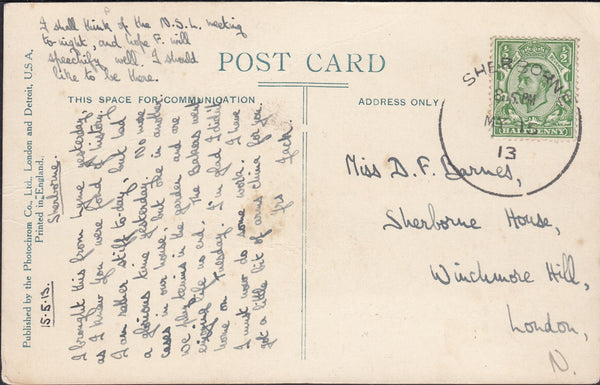 I shall think of the N.S.L. meeting
to-night, and hope F. will
speechify well. I should
like to be there.
POST CARD
THIS SPACE FOR COMMUNICATION.
ADDRESS ONLY
Published by the Photochrom Co., Ltd., London and Detroit, U.S.A.
Printed in England.
Sherborne.
15.5.13.
I brought this from Lyme yesterday,
as I knew you were fond of history.
I am rather stiff to-day, but had
a glorious time yesterday. No more
cases in our house, but one in another.
We play tennis in the garden and are
enjoying life no end. The Bakers went
home on Tuesday. I'm glad I didn't.
I must now do some work. I have
got a little bit of arms china for you.
Yrs Jack.
SHERBORNE
13
HALFPENNY
Miss D. F. Barnes,
Sherborne House,
Winchmore Hill,
London,
N.